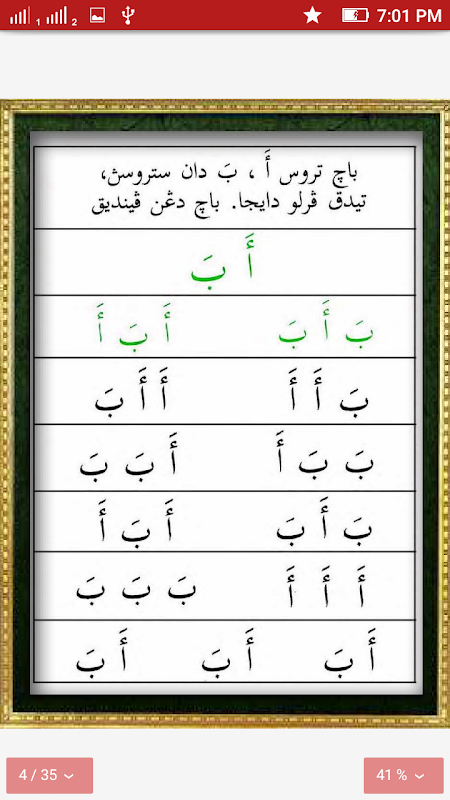 1 2 7:01 PM
باچ تروس أَ ، بَ دان ستروسڽ،
تيدق ڤرلو دايجا. باچ دڠن ڤينديق
أَ بَ
بَ أَ بَ أَ بَ أَ
بَ أَ أَ أَ أَ بَ
بَ بَ أَ أَ بَ بَ
بَ أَ بَ أَ بَ أَ
أَ أَ أَ بَ بَ بَ
أَ بَ أَ بَ أَ بَ
4 / 35 41 %